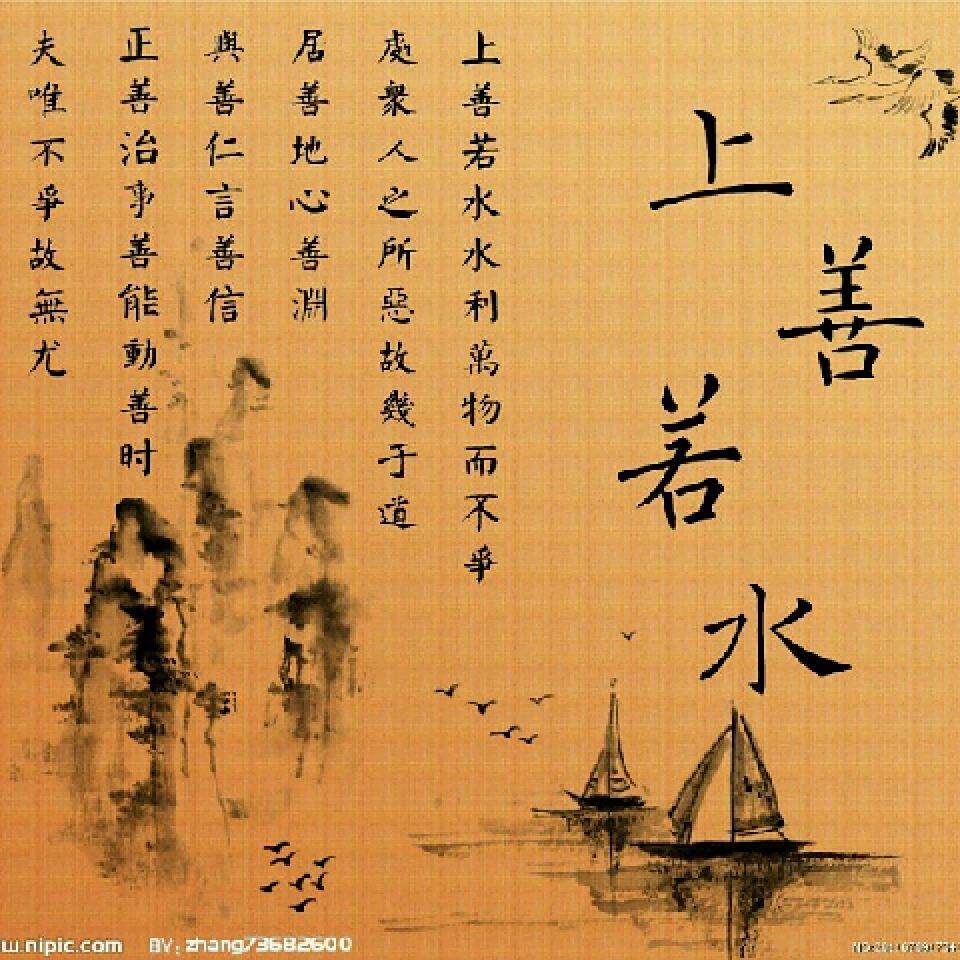 上善若水
上善若水水利萬物而不爭
處衆人之所惡故幾于道
居善地心善淵
與善仁言善信
正善治事善能動善时
夫唯不爭故無尤
w.nipic.com BY:zhang73682600